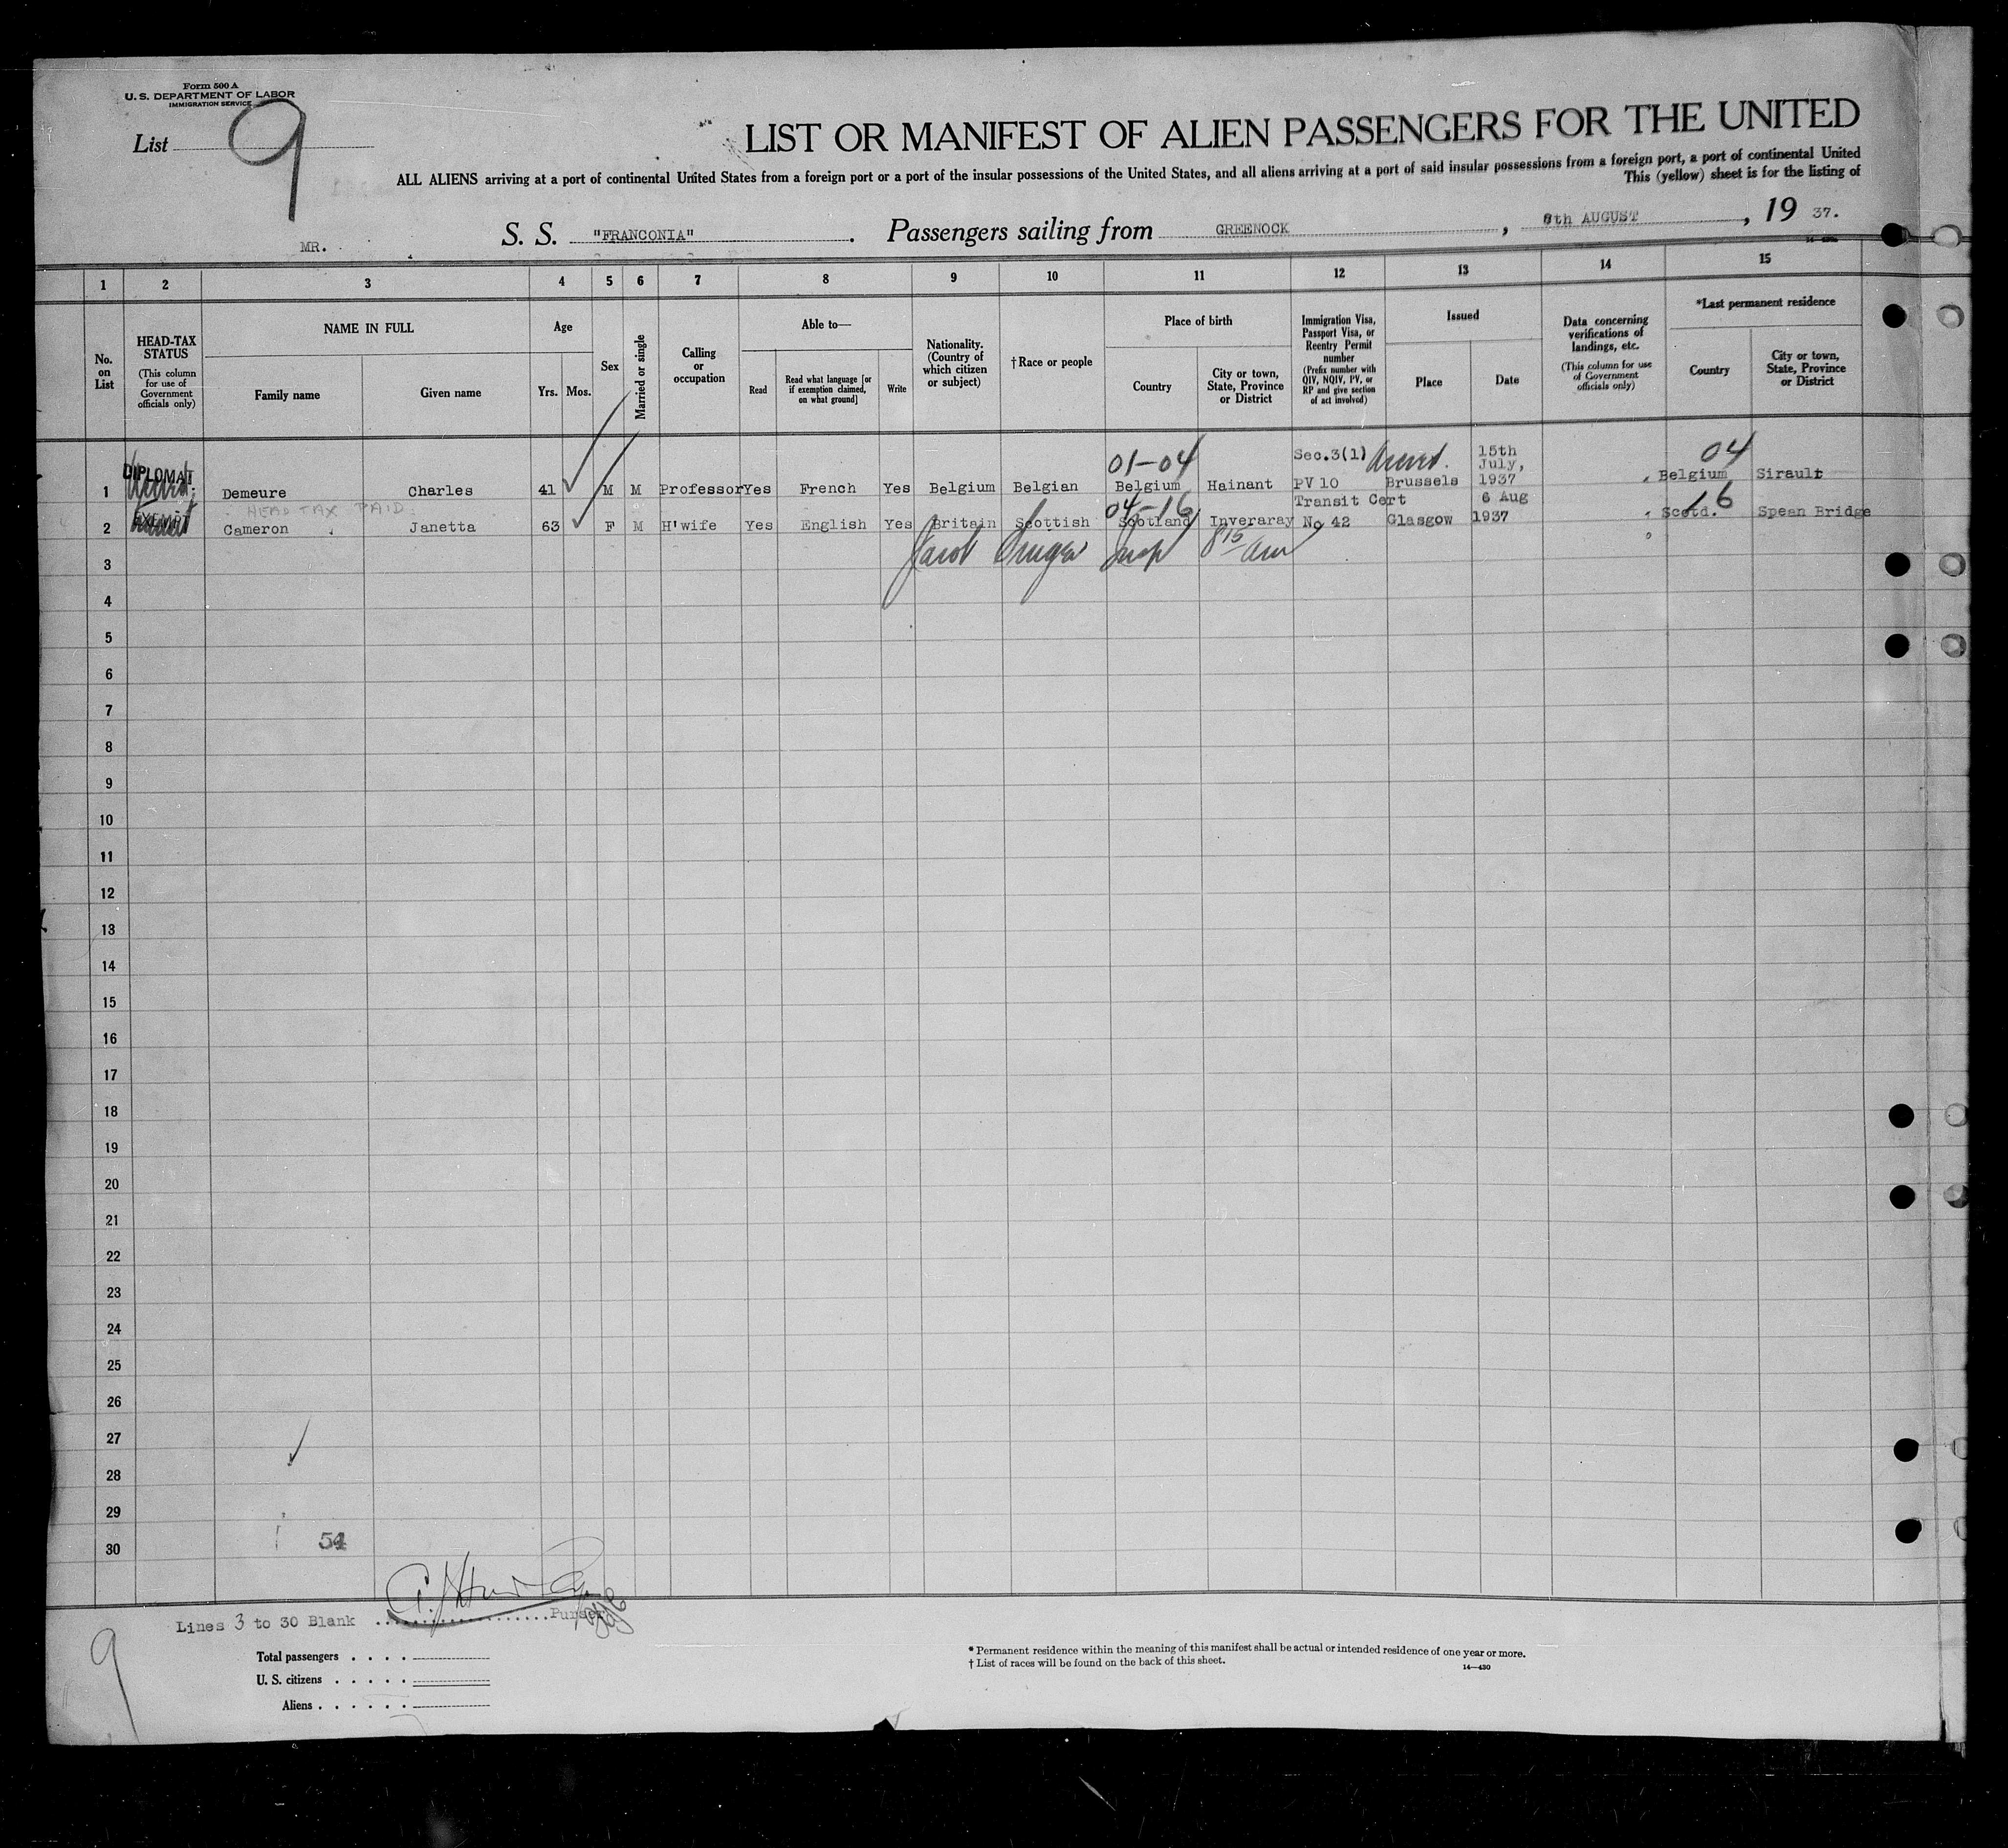 Form 500 A
U. S. DEPARTMENT OF LABOR
IMMIGRATION SERVICE
List 9
LIST OR MANIFEST OF ALIEN PASSENGERS FOR THE UNITED
ALL ALIENS arriving at a port of continental United States from a foreign port or a port of the insular possessions of the United States, and all aliens arriving at a port of said insular possessions from a foreign port, a port of continental United
This (yellow) sheet is for the listing of
MR. S. S. "FRANCONIA" . Passengers sailing from GREENOCK , 8th AUGUST , 19 37.
1 2 3 4 5 6 7 8 9 10 11 12 13 14 15
No. on List
HEAD-TAX STATUS
(This column for use of Government officials only)
NAME IN FULL
Family name Given name
Age
Yrs. Mos.
Sex
Married or single
Calling or occupation
Able to—
Read
Read what language [or if exemption claimed, on what ground]
Write
Nationality. (Country of which citizen or subject)
†Race or people
Place of birth
Country
City or town, State, Province or District
Immigration Visa, Passport Visa, or Reentry Permit number
(Prefix number with QIV, NQIV, PV, or RP and give section of act involved)
Issued
Place Date
Data concerning verifications of landings, etc.
(This column for use of Government officials only)
*Last permanent residence
Country
City or town, State, Province or District
01-04 Sec.3(1) 15th July, 04
DIPLOMAT
1 Demeure Charles 41 M M Professor Yes French Yes Belgium Belgian Belgium Hainant PV 10 Brussels 1937 Belgium Sirault
HEAD TAX PAID 04-16 Transit Cert 6 Aug 16
EXEMPT
2 Cameron Janetta 63 F M H'wife Yes English Yes Britain Scottish Scotland Inveraray No 42 Glasgow 1937 Scotd. Spean Bridge
3 Insp 8 15 am
4
5
6
7
8
9
10
11
12
13
14
15
16
17
18
19
20
21
22
23
24
25
26
27
28
29
30 54
Lines 3 to 30 Blank Purser
9
Total passengers
U. S. citizens
Aliens
* Permanent residence within the meaning of this manifest shall be actual or intended residence of one year or more.
† List of races will be found on the back of this sheet.
14—430